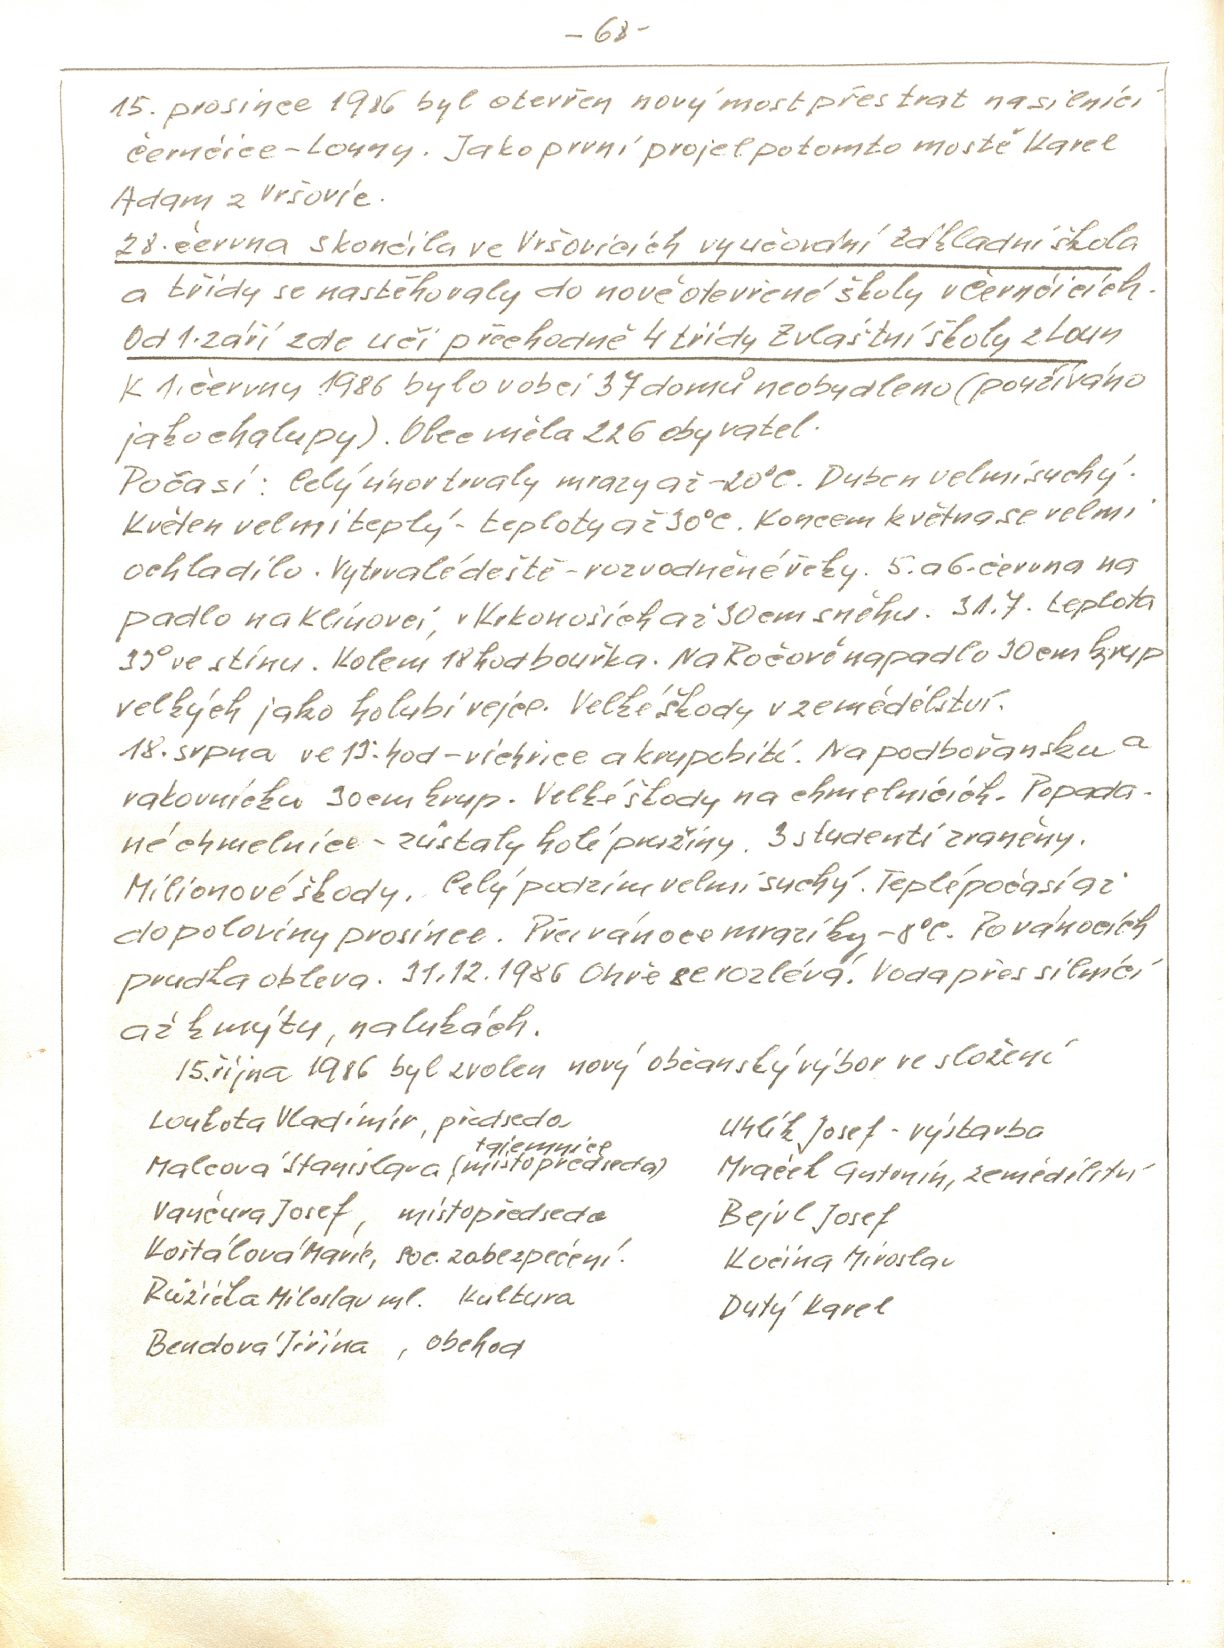 - 68 -
15. prosince 1986 byl otevřen nový most přes trať na silnici
Černčice - Louny. Jako první projel po tomto mostě Karel
Adam z Vršovic.
28. června skončila ve Vršovicích vyučování základní škola
a třídy se nastěhovaly do nově otevřené školy v Černčicích.
Od 1. září zde učí přechodně 4 třídy Zvláštní školy z Loun
K 1. červnu 1986 bylo v obci 37 domů neobydleno (používáno
jako chalupy). Obec měla 226 obyvatel.
Počasí: Celý únor trvaly mrazy až -20°C. Duben velmi suchý.
Květen velmi teplý - teploty až 30°C. Koncem května se velmi
ochladilo. Vytrvalé deště - rozvodněné řeky. 5. a 6. června na
padlo na Klínovci, v Krkonoších až 30 cm sněhu. 31.7. teplota
33° ve stínu. Kolem 18 hod bouřka. Na Ročově napadlo 30 cm krup
velkých jako holubí vejce. Velké škody v zemědělství.
18. srpna ve 15. hod - vichřice a krupobití. Na podbořansku a
rakovnicku 30 cm krup. Velké škody na chmelnicích. Popada-
né chmelnice - zůstaly holé pružiny. 3 studenti zraněny.
Milionové škody. Celý podzim velmi suchý. Teplé počasí až
do poloviny prosince. Přes vánoce mrazíky -8°C. Po vánocích
prudká obleva. 31.12.1986 Ohře se rozlévá. Voda přes silnici
až k mýtu, na lukách.
15. října 1986 byl zvolen nový občanský výbor ve složení
Loukota Vladimír, předseda
Uhlík Josef - výstavba
tajemnice
Malcová Stanislava (místopředseda)
Mraček Antonín, zemědělství
Vančura Josef, místopředseda
Bejvl Josef
Košťálová Marie, soc. zabezpečení.
Kučina Miroslav
Růžička Miloslav ml. Kultura
Dutý Karel
Bendová Jiřina, obchod